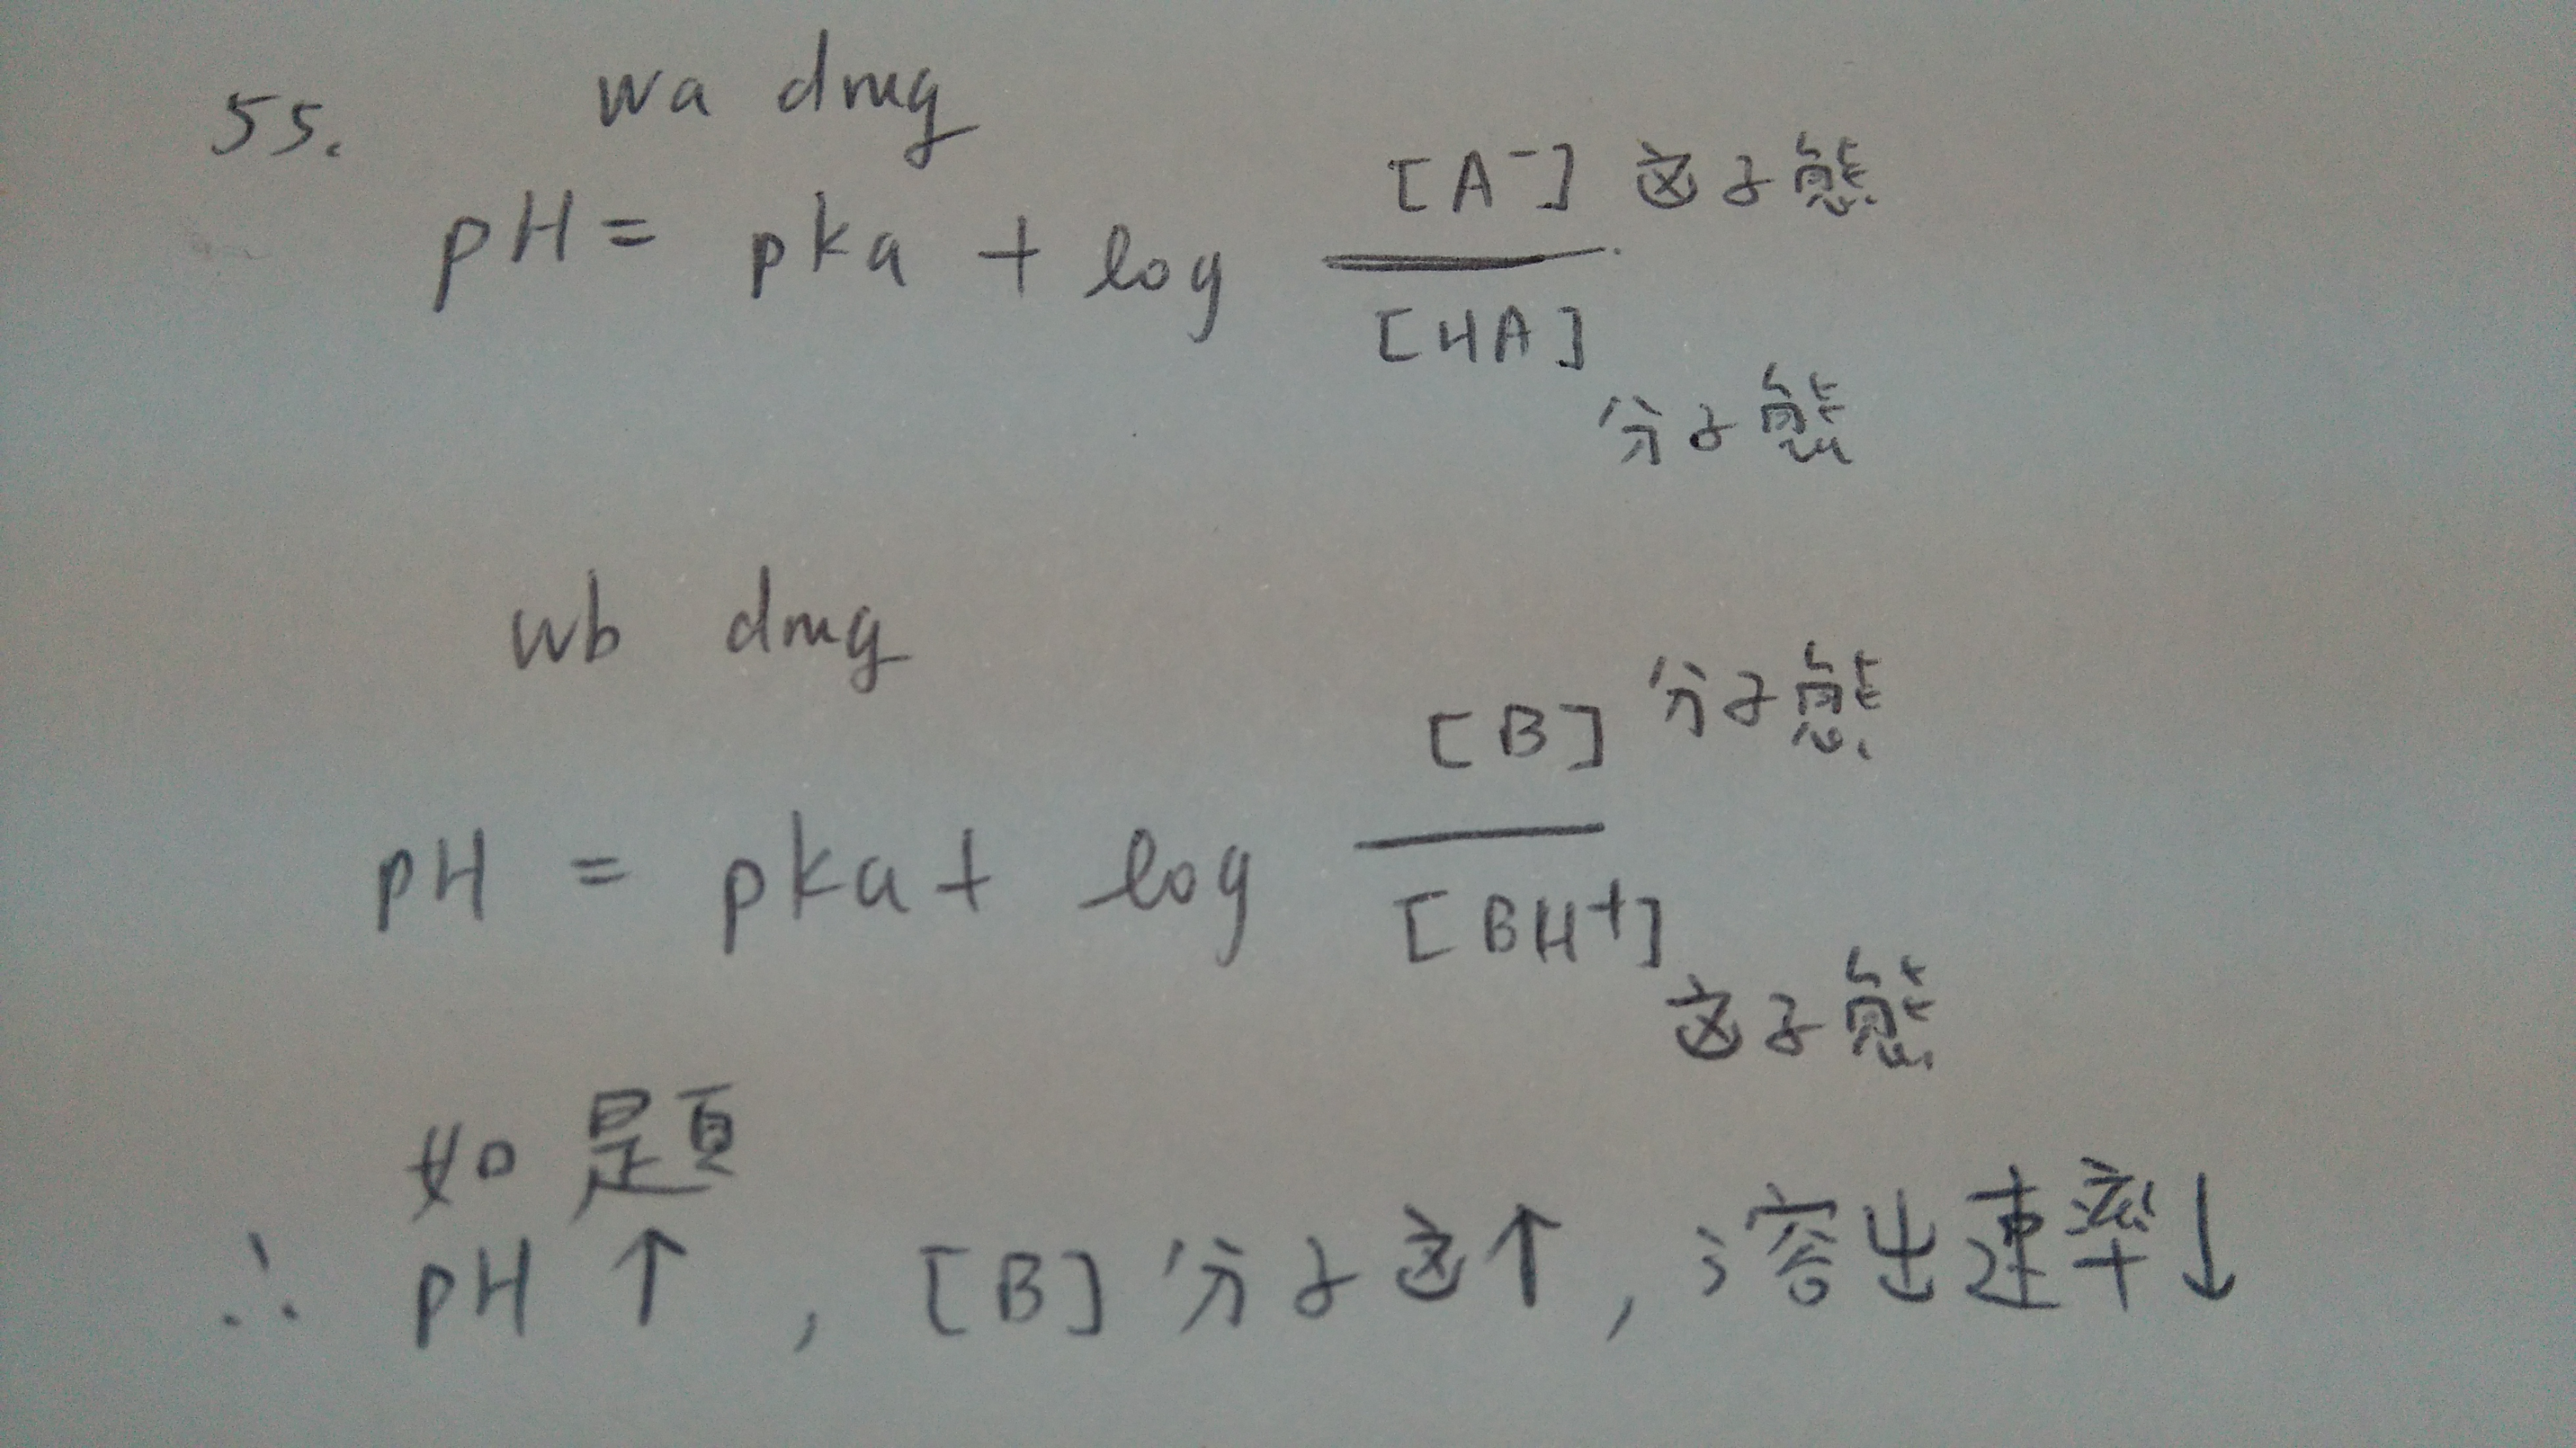 55. wa drug
pH = pka + log [A⁻] 这子態
[HA]
分子態
wb drug
[B] 分子態
pH = pka + log
[BH⁺]
这子態
如題
∴ pH ↑ , [B] 分子这↑ , 溶出速率↓